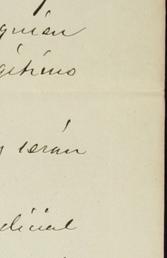 quién
gítimo
y serán
dicial